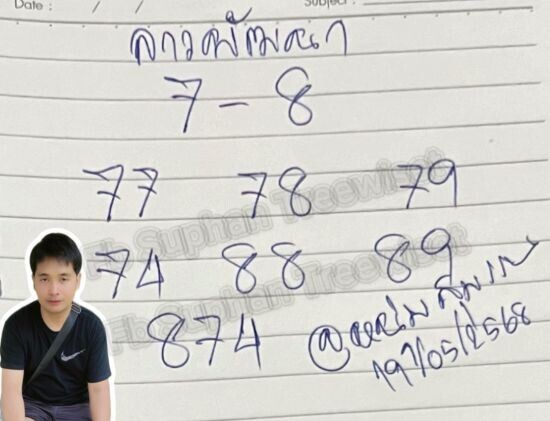 Date : / /
Subject :
ลาวพัฒนา
7 - 8
77 78 79
74 88 89
874
@หนุ่ม สุพรรณ
19/05/2568
Fb Suphan Treewiset
Fb Suphan Treewiset